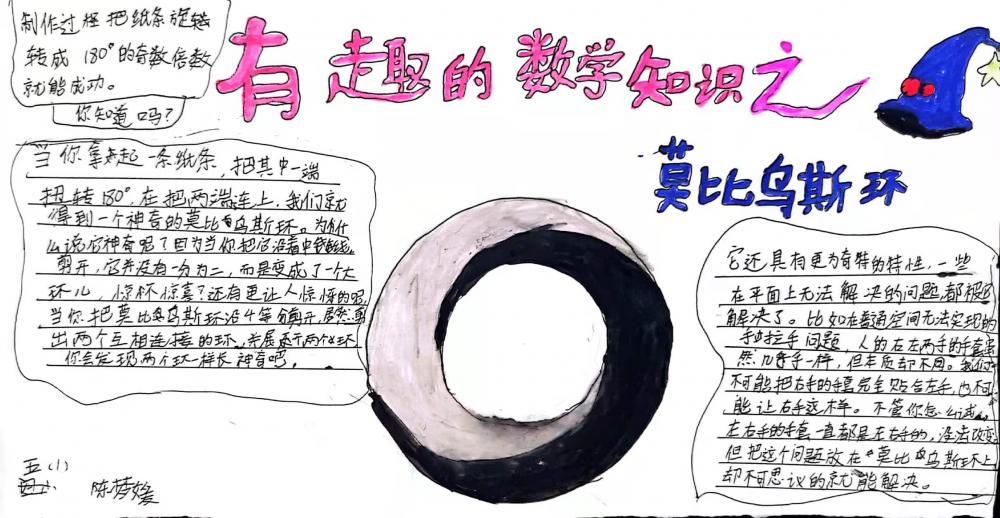 制作过程把纸条旋转
转成180°的奇数倍数
就能成功。
你知道吗?
有趣的数学知识之
莫比乌斯环
当你拿起一条纸条,把其中一端
扭转180°,在把两端连上,我们就
得到一个神奇的莫比乌斯环。为什
么说它神奇呢?因为当你把它沿着中
剪开,它并没有一分为二,而是变成了一个大
环儿,惊不惊喜?还有更让人惊讶的呢,
当你把莫比乌斯环沿4等分剪开,居然
出两个互相连接的环,并展示两个环
你会发现两个环一样长神奇吧。
它还具有更为奇特的特性,一些
在平面上无法解决的问题都被
解决了。比如在普通空间无法实现的
手拉手问题,人的右左两手的手套虽
然几乎一样,但本质却不同。我们
不可能把右手的手套完全贴合左手,也不可
能让右手这样。不管你怎么试
左右手的手套一直都是左右手的,没法改变
但把这个问题放在莫比乌斯环上
却不可思议的就能解决。
五(1)
陈梦媛